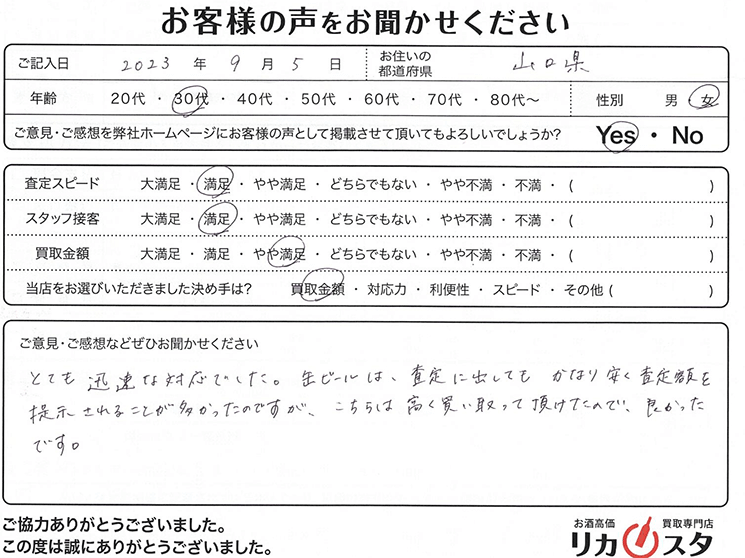 お客様の声をお聞かせください
ご記入日 2023 年 9 月 5 日 お住いの都道府県 山口県
年齢 20代 ・ 30代 ・ 40代 ・ 50代 ・ 60代 ・ 70代 ・ 80代～ 性別 男 ・ 女
ご意見・ご感想を弊社ホームページにお客様の声として掲載させて頂いてもよろしいでしょうか? Yes ・ No
査定スピード 大満足 ・ 満足 ・ やや満足 ・ どちらでもない ・ やや不満 ・ 不満 ・ ( )
スタッフ接客 大満足 ・ 満足 ・ やや満足 ・ どちらでもない ・ やや不満 ・ 不満 ・ ( )
買取金額 大満足 ・ 満足 ・ やや満足 ・ どちらでもない ・ やや不満 ・ 不満 ・ ( )
当店をお選びいただきました決め手は? 買取金額 ・ 対応力 ・ 利便性 ・ スピード ・ その他 ( )
ご意見・ご感想などぜひお聞かせください
とても迅速な対応でした。缶ビールは、査定に出してもかなり安く査定額を
提示されることが多かったのですが、こちらは高く買い取って頂けたので、良かった
です。
ご協力ありがとうございました。
この度は誠にありがとうございました。
お酒高価 買取専門店
リカスタ